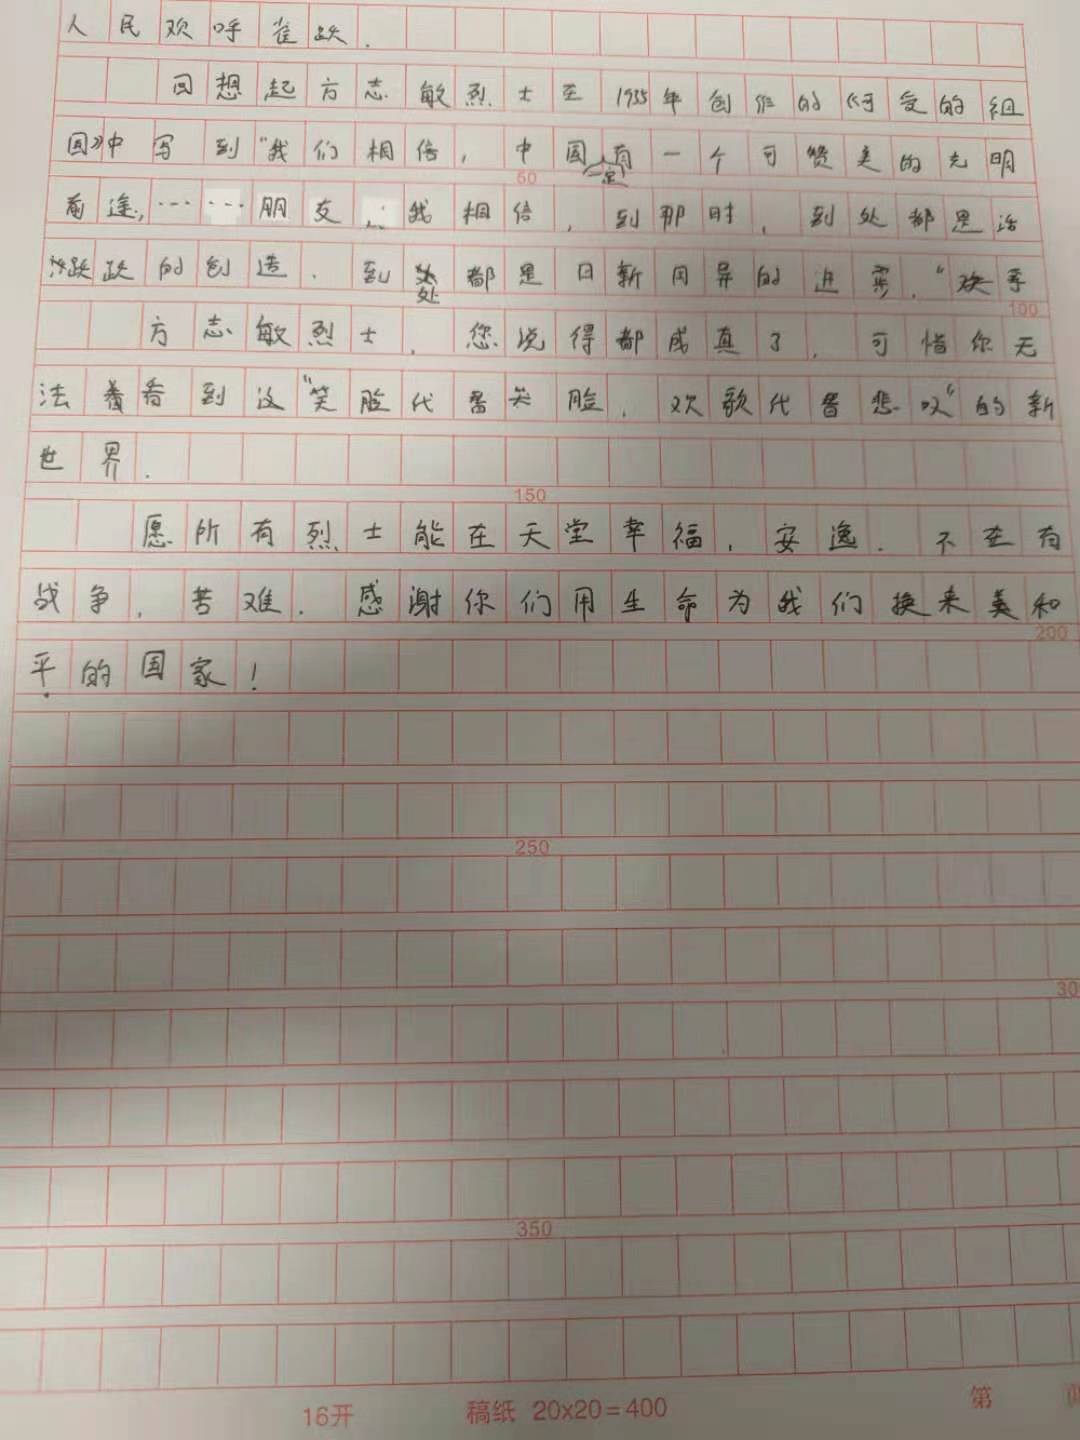 人民欢呼雀跃.
回想起方志敏烈士在1935年创作的《可爱的祖
国》中写到"我们相信,中国一定有一个可赞美的光明
50
前途,……朋友,我相信,到那时,到处都是活
跃跃的创造.到处都是日新月异的进步."
100
方志敏烈士,您说得都成真了,可惜你无
法看到这"笑脸代替哭脸,欢歌代替悲叹"的新
世界.
150
愿所有烈士能在天堂幸福,安逸.不在有
战争,苦难.感谢你们用生命为我们换来美和
200
平的国家!
250
30
350
16开 稿纸 20x20=400 第